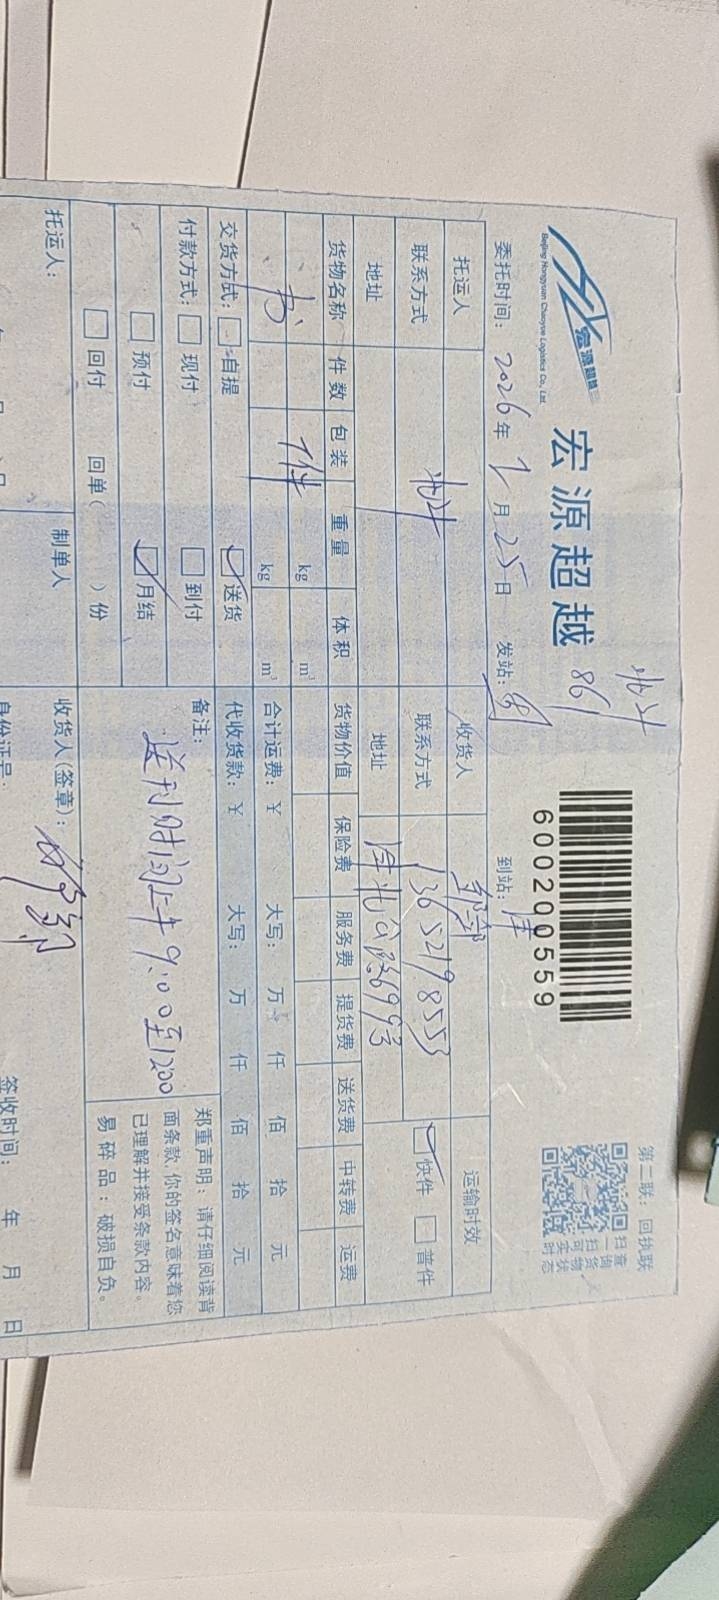 宏源超越
宏源超越 861
Beijing Hongyuan Chaoyue Logistics Co., Ltd.
600200559
第二联：回执联
扫一扫可实时
查询货物状态
委托时间：2026年1月25日 发站： 到站：津
托运人 收货人 运输时效
联系方式 联系方式 13652198553 快件 普件
地址 地址
货物名称 件数 包装 重量 体积 货物价值 保险费 服务费 提货费 送货费 中转费 运费
书 1件 kg m³
kg m³ 合计运费：￥ 大写： 万 仟 佰 拾 元
交货方式： 自提 送货 代收货款：￥ 大写： 万 仟 佰 拾 元
付款方式： 现付 到付 备注：
预付 月结 送到时间上午9:00至1200
回付 回单（ ）份
郑重声明：请仔细阅读背
面条款，你的签名意味着您
已理解并接受条款内容。
易碎品：破损自负。
托运人： 制单人 收货人（签章）：
年 月 日 身份证号： 签收时间： 年 月 日